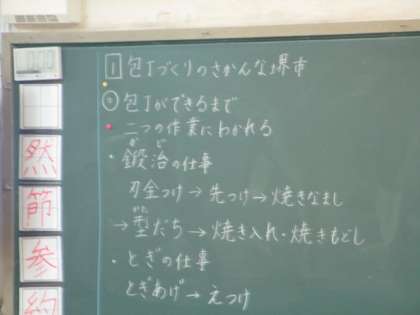 1 包丁づくりのさかんな堺市
② 包丁ができるまで
二つの作業にわかれる
・鍛冶の仕事
刃金つけ→先つけ→焼きなまし
→型だち→焼き入れ・焼きもどし
・とぎの仕事
とぎあげ→えつけ
然
節
参
約